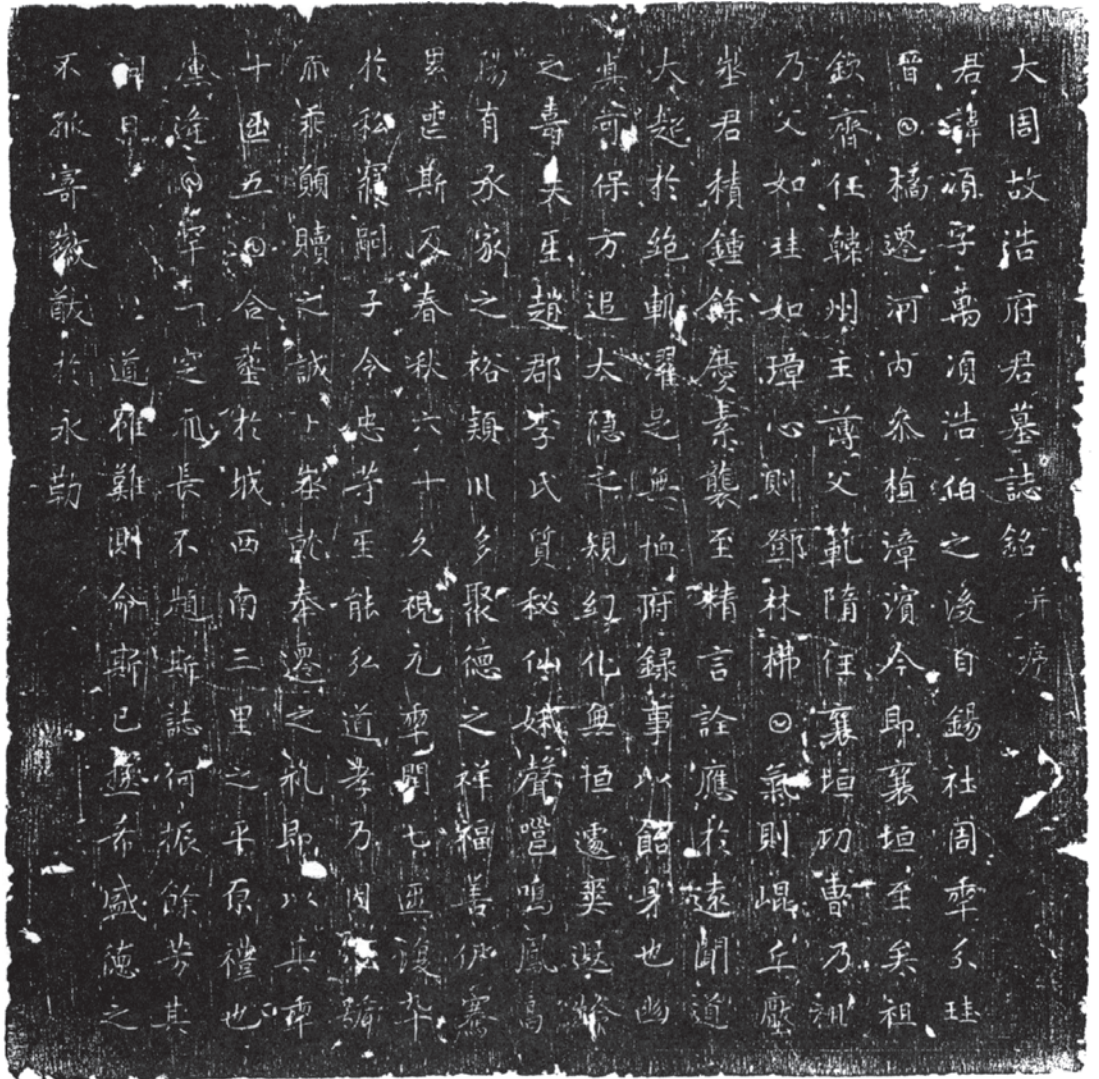 大周故浩府君墓誌銘 并序
君諱頊字萬頃浩伯之後自錫社周𠡦分珪
晉𡆠播遷河内条植漳濱今即襄垣至矣祖
欽齊任韓州主薄父範隋任襄垣功曹乃祖
乃父如珪如璋心則鄧林拂𡆠氣則崐丘壓
埊君積鍾餘慶素襲至精言詮應於遠聞道
大起於絶軌濯足無恤府録事以韶身也幽
貞可保方追大隱之規幻化無恒遽奕遐齡
之壽夫𤯔趙郡李氏質秘仙娥聲邕鳴鳳高
陽有承家之裕潁川多聚德之祥福善俄騫
異遘斯及春秋六十久視元𠡦閏七𠥱復卒
於私寢嗣子令忠等𤯔能弘道孝乃因踰
而乘顛贖之誠卜就奉遷之礼即以其𠡦
十𠥱五𡆠合葬於城西南三里之平原禮也
逢𡆠一定而長不題斯誌何振餘芳其
詞曰 道難測命斯已希盛德之
不孤寄徽猷於永勒